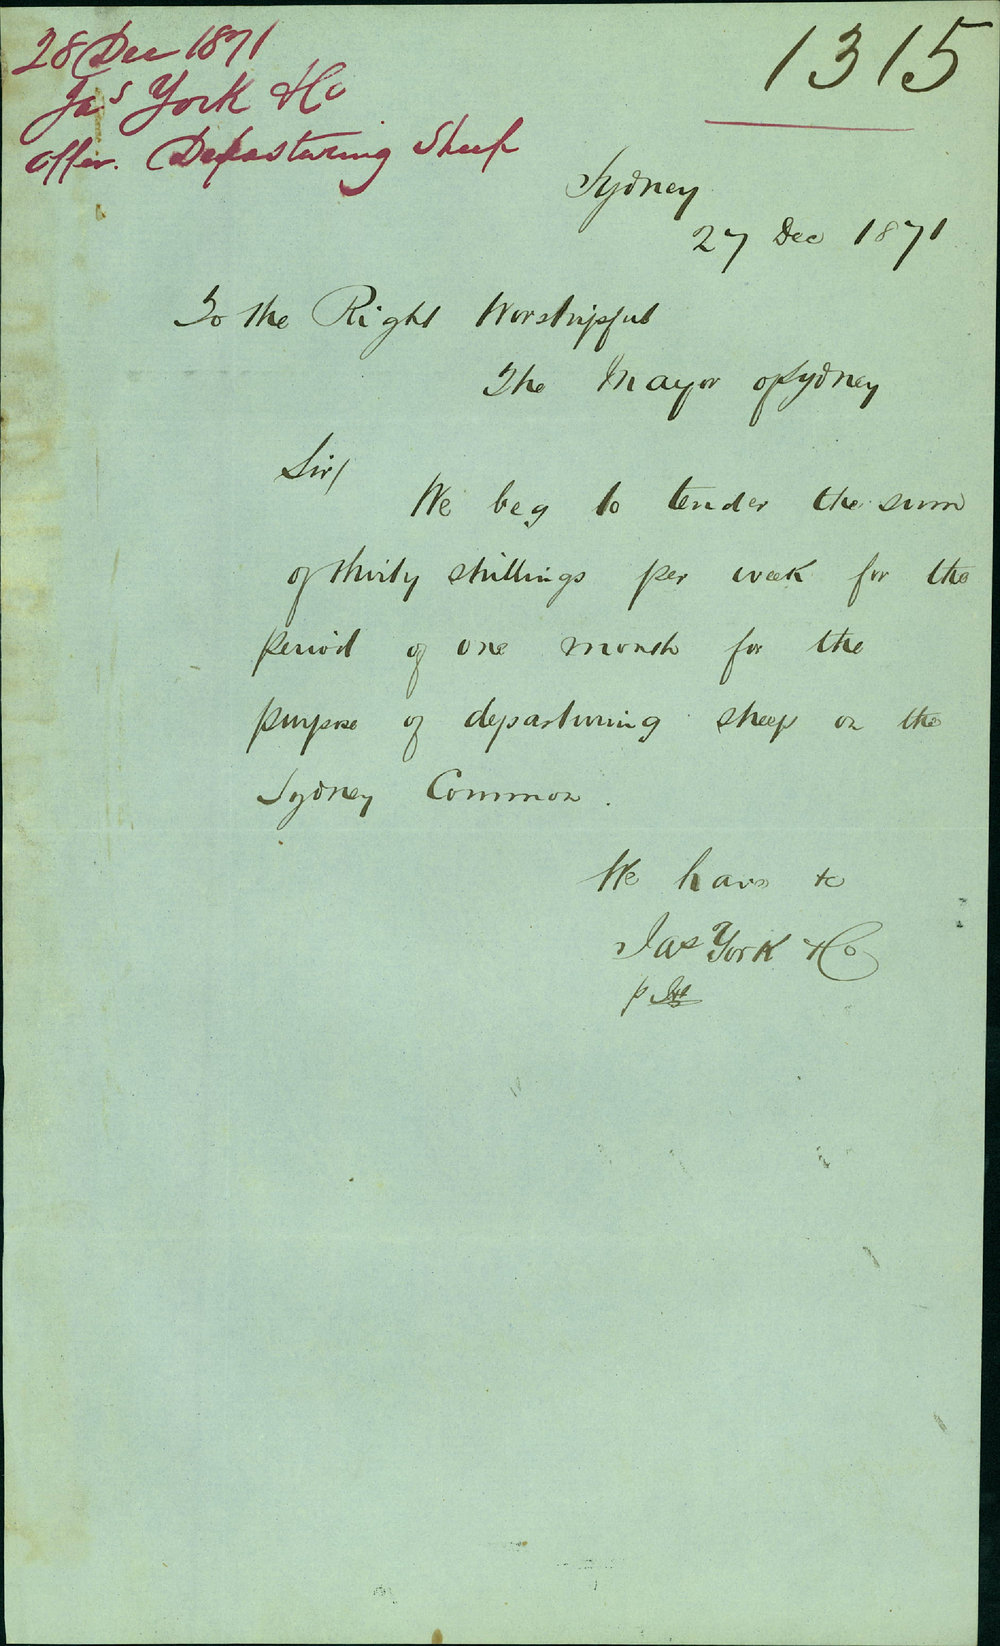 28 Dec 1871
Jas York & Co
Offer. Depasturing Sheep
1315
Sydney
27 Dec 1871
To the Right Worshipful
The Mayor of Sydney
Sir/
We beg to tender the sum
of thirty shillings per week for the
period of one month for the
purpose of depasturing sheep on the
Sydney Common.
We have &c
Jas York & Co
p